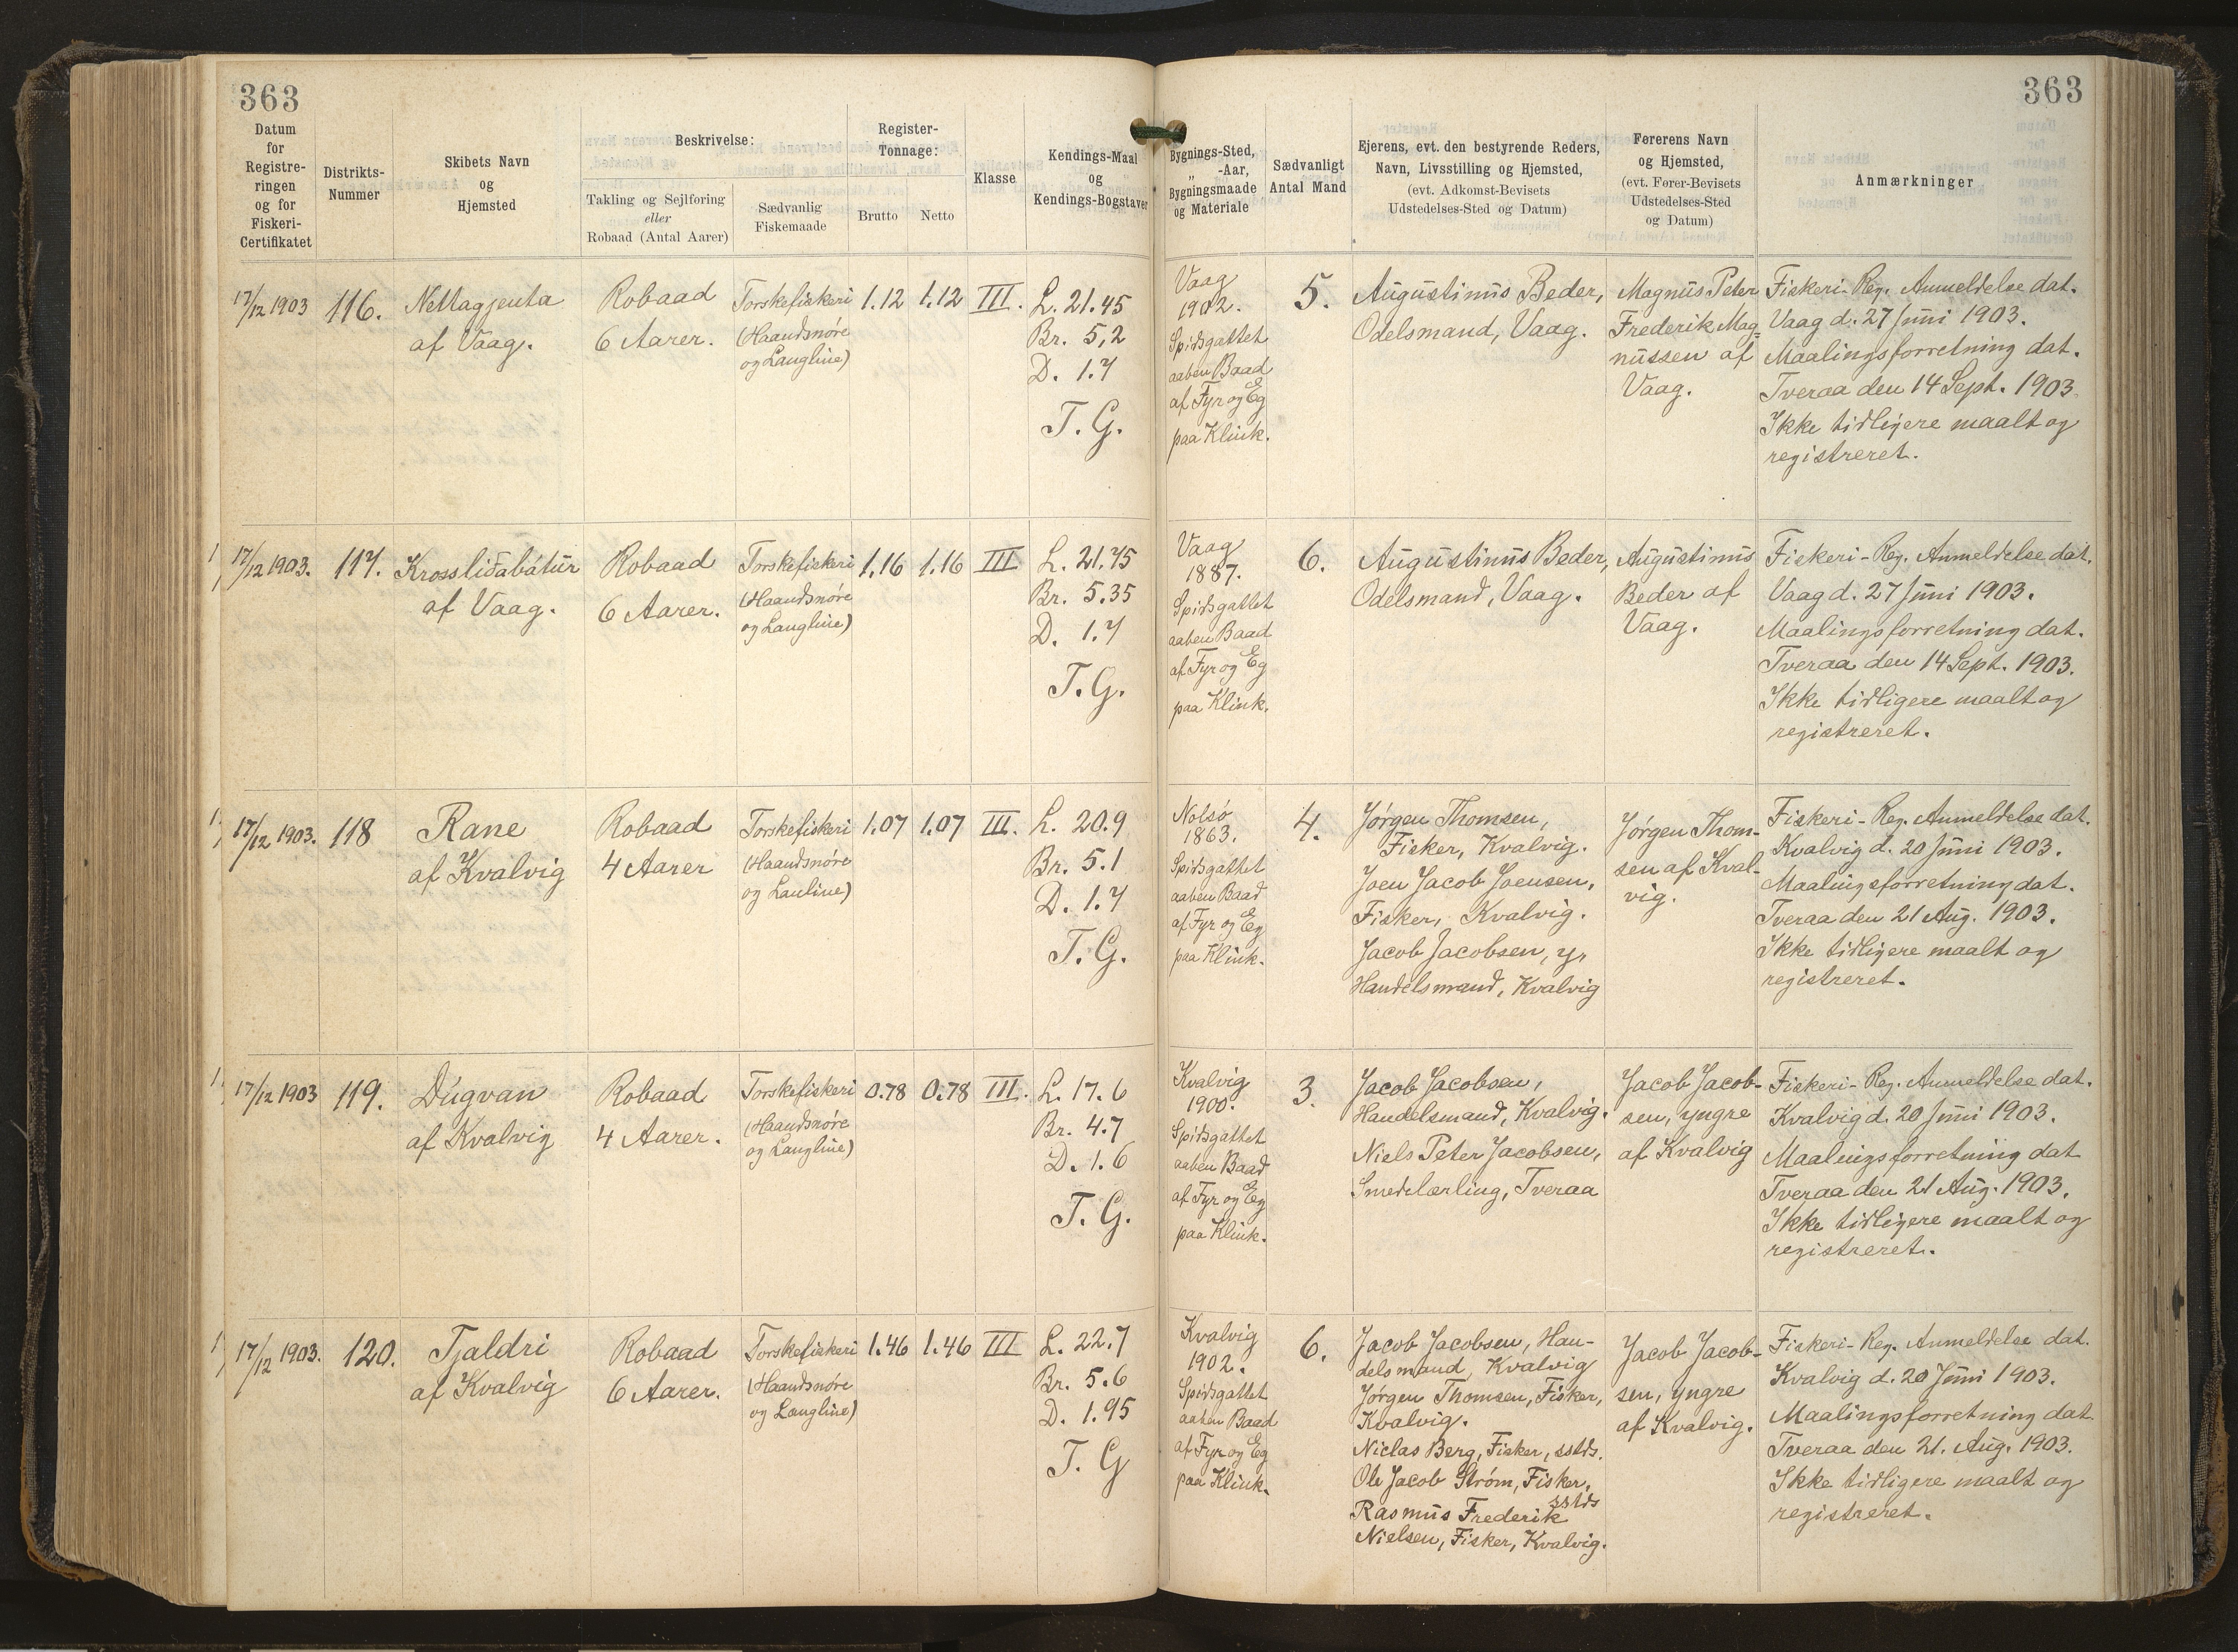 363
363
Datum
for
Registre-
ringen
og for
Fiskeri-
Certifikatet
Distrikts-
Nummer
Skibets Navn
og
Hjemsted
Beskrivelse:
Takling og Sejlføring
eller
Robaad (Antal Aarer)
Sædvanlig
Fiskemaade
Register-
Tonnage:
Brutto
Netto
Klasse
Kendings-Maal
og
Kendings-Bogstaver
Bygnings-Sted,
„ -Aar,
Bygningsmaade
og Materiale
Sædvanligt
Antal Mand
Ejerens, evt. den bestyrende Reders,
Navn, Livsstilling og Hjemsted,
(evt. Adkomst-Bevisets
Udstedelses-Sted og Datum)
Førerens Navn
og Hjemsted,
(evt. Fører-Bevisets
Udstedelses-Sted
og Datum)
Anmærkninger
17/12 1903
116.
Nettagjenta
af Vaag.
Robaad
6 Aarer.
Torskefiskeri
(Haandsnøre
og Langline)
1.12
1.12
III.
L. 21.45
Br. 5,2
D. 1.7
T. G.
Vaag
1902.
Spidsgattet
aaben Baad
af Fyr og Eg
paa Klink.
5.
Augustinus Beder,
Odelsmand, Vaag.
Magnus Peter
Frederik Mag-
nussen af
Vaag.
Fiskeri-Reg. Anmeldelse dat.
Vaag d. 27 Juni 1903.
Maalingsforretning dat.
Tveraa den 14 Sept. 1903.
Ikke tidligere maalt og
registreret.
17/12 1903.
117.
Krossliðabátur
af Vaag.
Robaad
6 Aarer.
Torskefiskeri
(Haandsnøre
og Langline)
1.16
1.16
III
L. 21.75
Br. 5.35
D. 1.7
T. G.
Vaag
1887.
Spidsgattet
aaben Baad
af Fyr og Eg
paa Klink.
6.
Augustinus Beder,
Odelsmand, Vaag.
Augustinus
Beder af
Vaag.
Fiskeri-Reg. Anmeldelse dat.
Vaag d. 27 Juni 1903.
Maalingsforretning dat.
Tveraa den 14 Sept. 1903.
Ikke tidligere maalt og
registreret.
17/12 1903.
118
Rane
af Kvalvig
Robaad
4 Aarer
Torskefiskeri
(Haandsnøre
og Lauline)
1.07
1.07
III.
L. 20.9
Br. 5.1
D. 1.7
T. G.
Nolsø
1863.
Spidsgattet
aaben Baad
af Fyr og Eg
paa Klink.
4.
Jørgen Thomsen,
Fisker, Kvalvig.
Joen Jacob Joensen,
Fisker, Kvalvig.
Jacob Jacobsen, yr
Handelsmand, Kvalvig
Jørgen Thom-
sen af Kval-
vig.
Fiskeri-Reg. Anmeldelse dat.
Kvalvig d. 20 Juni 1903.
Maalingsforretning dat.
Tveraa den 21 Aug. 1903.
Ikke tidligere maalt og
registreret.
17/12 1903
119.
Dúgvan
af Kvalvig
Robaad
4 Aarer.
Torskefiskeri
(Haandsnøre
og Langline)
0.78
0.78
III.
L. 17.6
Br. 4.7
D. 1.6
T. G.
Kvalvig
1900.
Spidsgattet
aaben Baad
af Fyr og Eg
paa Klink.
3.
Jacob Jacobsen,
Handelsmand, Kvalvig.
Niels Peter Jacobsen,
Smedelærling, Tveraa
Jacob Jacob-
sen, yngre
af Kvalvig
Fiskeri-Reg. Anmeldelse dat.
Kvalvig d. 20 Juni 1903.
Maalingsforretning dat
Tveraa den 21 Aug. 1903.
Ikke tidligere maalt og
registreret.
17/12 1903.
120.
Tjaldri
af Kvalvig
Robaad
6 Aarer.
Torskefiskeri
(Haandsnøre
og Langline)
1.46
1.46
III
L. 22.7
Br. 5.6
D. 1.95
T. G
Kvalvig
1902.
Spidsgattet
aaben Baad
af Fyr og Eg
paa Klink.
6.
Jacob Jacobsen, Han-
delsmand, Kvalvig
Jørgen Thomsen, Fisker,
Kvalvig.
Niclas Berg, Fisker, sstds.
Ole Jacob Strøm, Fisker,
sstds
Rasmus Frederik
Nielsen, Fisker, Kvalvig.
Jacob Jacob-
sen, yngre
af Kvalvig.
Fiskeri-Reg. Anmeldelse dat.
Kvalvig d. 20 Juni 1903.
Maalingsforretning dat.
Tveraa den 21. Aug. 1903.
Ikke tidligere maalt og
registreret.